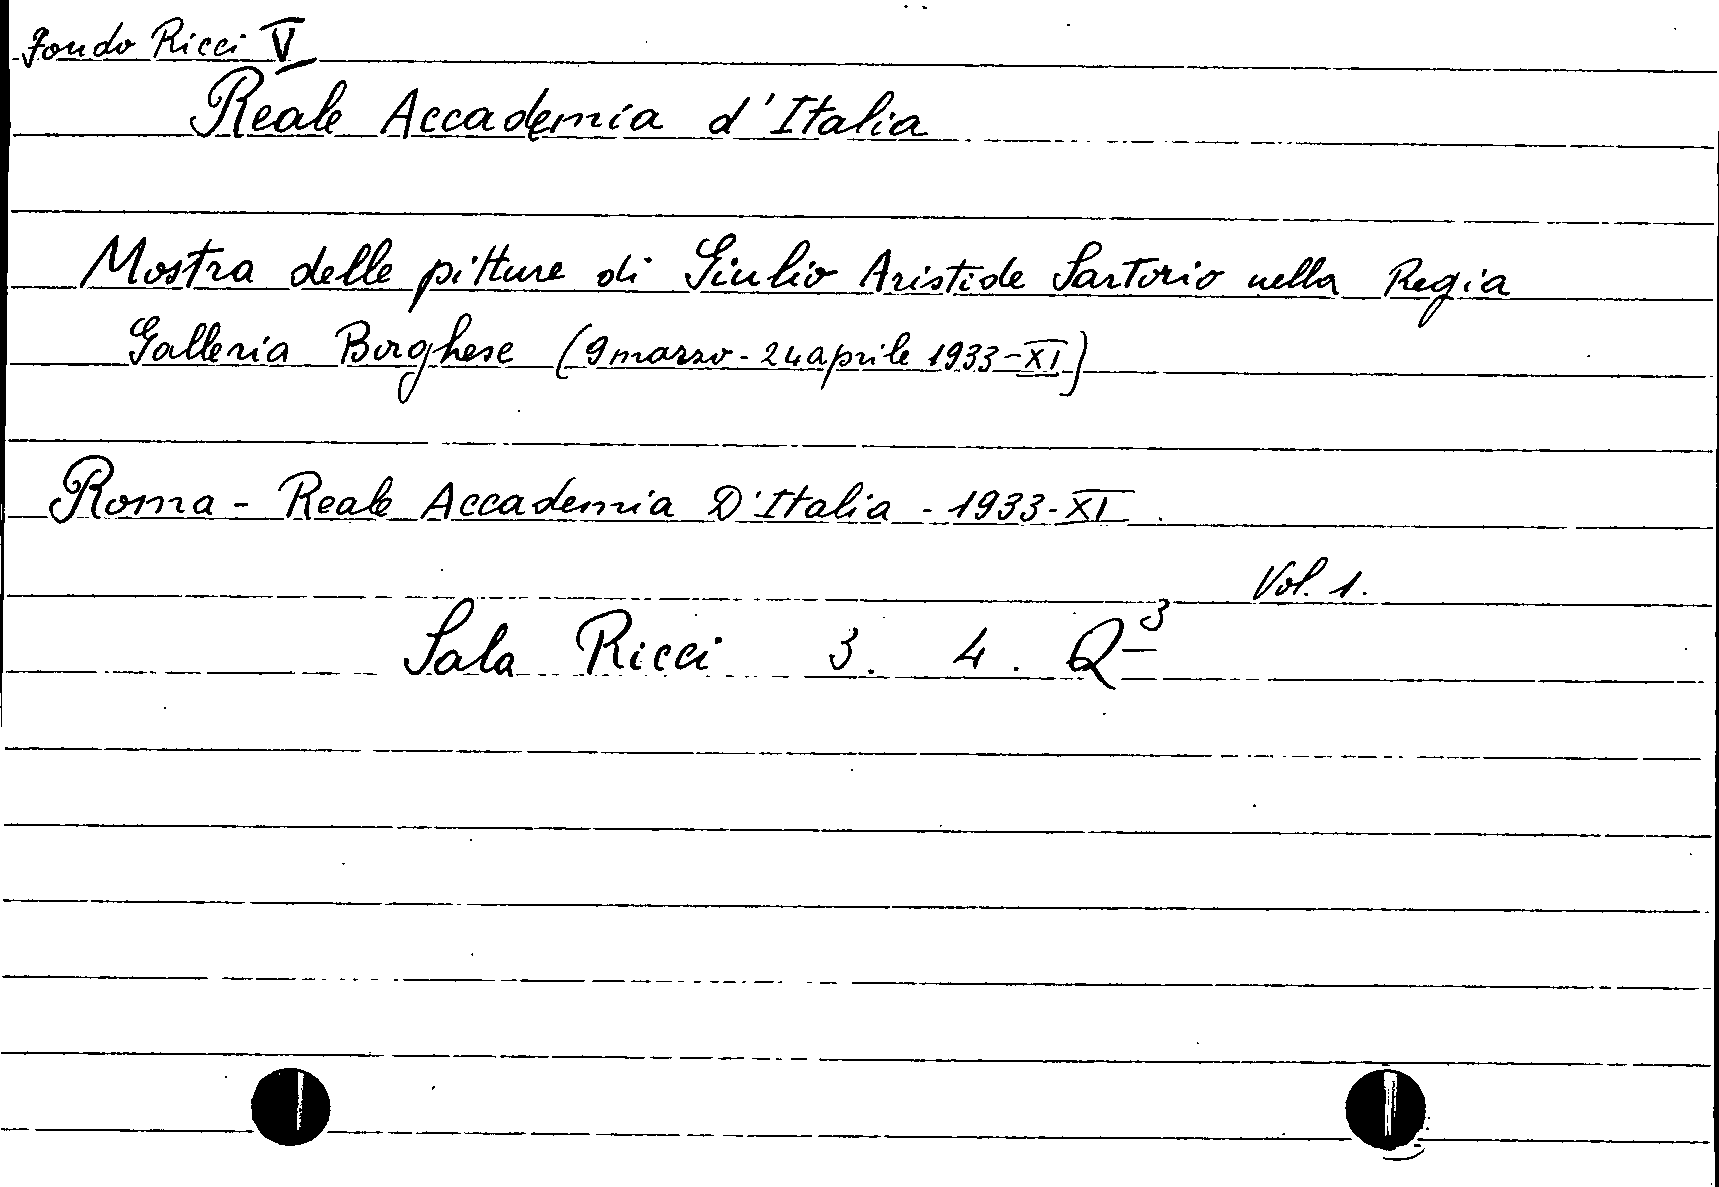 Fondo Ricci V
Reale Accademia d'Italia
Mostra delle pitture di Giulio Aristide Sartorio nella Regia
Galleria Borghese (9 marzo - 24 aprile 1933-XI)
Roma - Reale Accademia D'Italia - 1933-XI.
Vol. 1.
Sala Ricci 3. 4. Q-3